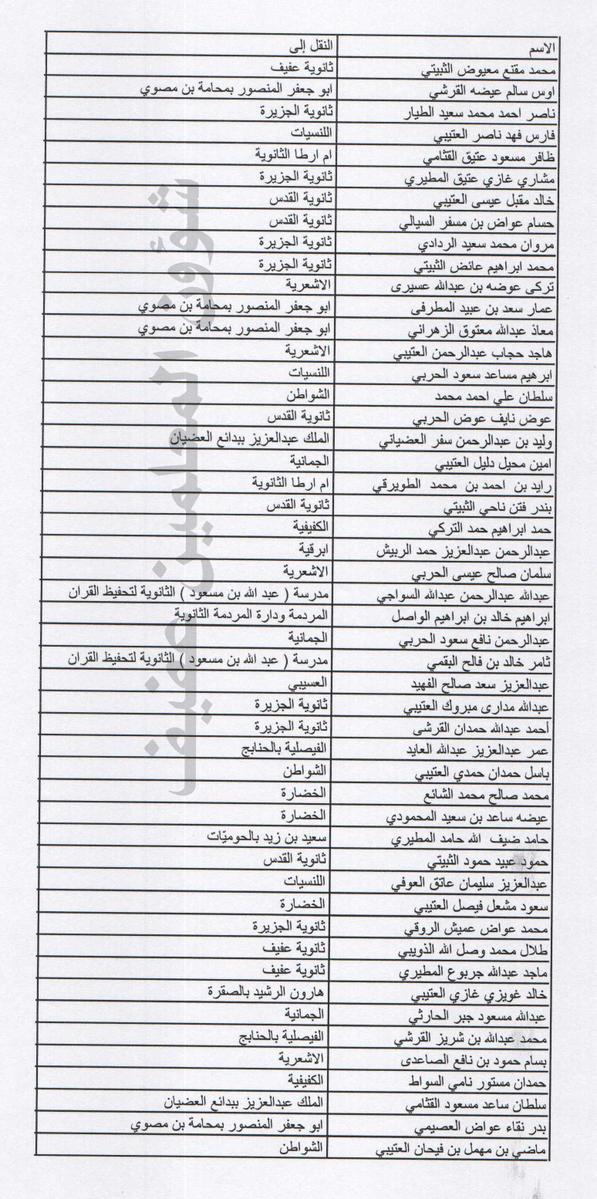 الاسم النقل إلى
محمد مقنع معيوض الثبيتي ثانوية عفيف
اوس سالم عيضه القرشي ابو جعفر المنصور بمحامة بن مصوي
ناصر احمد محمد سعيد الطيار ثانوية الجزيرة
فارس فهد ناصر العتيبي اللنسيات
ظافر مسعود عتيق القثامي ام ارطا الثانوية
مشاري غازي عتيق المطيري ثانوية الجزيرة
خالد مقبل عيسى العتيبي ثانوية القدس
حسام عواض بن مسفر السيالي ثانوية القدس
مروان محمد سعيد الردادي ثانوية الجزيرة
محمد ابراهيم عائض الثبيتي ثانوية الجزيرة
تركى عوضه بن عبدالله عسيرى الاشعرية
عمار سعد بن عبيد المطرفى ابو جعفر المنصور بمحامة بن مصوي
معاذ عبدالله معتوق الزهراني ابو جعفر المنصور بمحامة بن مصوي
هاجد حجاب عبدالرحمن العتيبي الاشعرية
ابرهيم مساعد سعود الحربي اللنسيات
سلطان علي احمد محمد الشواطن
عوض نايف عوض الحربي ثانوية القدس
وليد بن عبدالرحمن سفر العضياني الملك عبدالعزيز ببدائع العضيان
امين محيل دليل العتيبي الجمانية
رايد بن احمد بن محمد الطويرقي ام ارطا الثانوية
بندر فتن ناحي الثبيتي ثانوية القدس
حمد ابراهيم حمد التركي الكفيفية
عبدالرحمن عبدالعزيز حمد الربيش ابرقية
سلمان صالح عيسى الحربي الاشعرية
عبدالله عبدالرحمن عبدالله السواجي مدرسة ( عبد الله بن مسعود ) الثانوية لتحفيظ القران
ابراهيم خالد بن ابراهيم الواصل المردمة ودارة المردمة الثانوية
عبدالرحمن نافع سعود الحربي الجمانية
ثامر خالد بن فالح البقمي مدرسة ( عبد الله بن مسعود ) الثانوية لتحفيظ القران
عبدالعزيز سعد صالح الفهيد العسيبي
عبدالله مدارى مبروك العتيبي ثانوية الجزيرة
أحمد عبدالله حمدان القرشى ثانوية الجزيرة
عمر عبدالعزيز عبدالله العايد الفيصلية بالحنابج
باسل حمدان حمدي العتيبي الشواطن
محمد صالح محمد الشائع الخضارة
عيضه ساعد بن سعيد المحمودي الخضارة
حامد ضيف الله حامد المطيري سعيد بن زيد بالحوميّات
حمود عبيد حمود الثبيتي ثانوية القدس
عبدالعزيز سليمان عاتق العوفي اللنسيات
سعود مشعل فيصل العتيبي الخضارة
محمد عواض عميش الروقي ثانوية الجزيرة
طلال محمد وصل الله الذويبي ثانوية عفيف
ماجد عبدالله جربوع المطيري ثانوية عفيف
خالد غويزي غازي العتيبي هارون الرشيد بالصقرة
عبدالله مسعود جبر الحارثي الجمانية
محمد عبدالله بن شريز القرشي الفيصلية بالحنابج
بسام حمود بن نافع الصاعدى الاشعرية
حمدان مستور نامي السواط الكفيفية
سلطان ساعد مسعود القثامي الملك عبدالعزيز ببدائع العضيان
بدر نقاء عواض العصيمي ابو جعفر المنصور بمحامة بن مصوي
ماضي بن مهمل بن فيحان العتيبي الشواطن
شؤون المعلمين عفيف